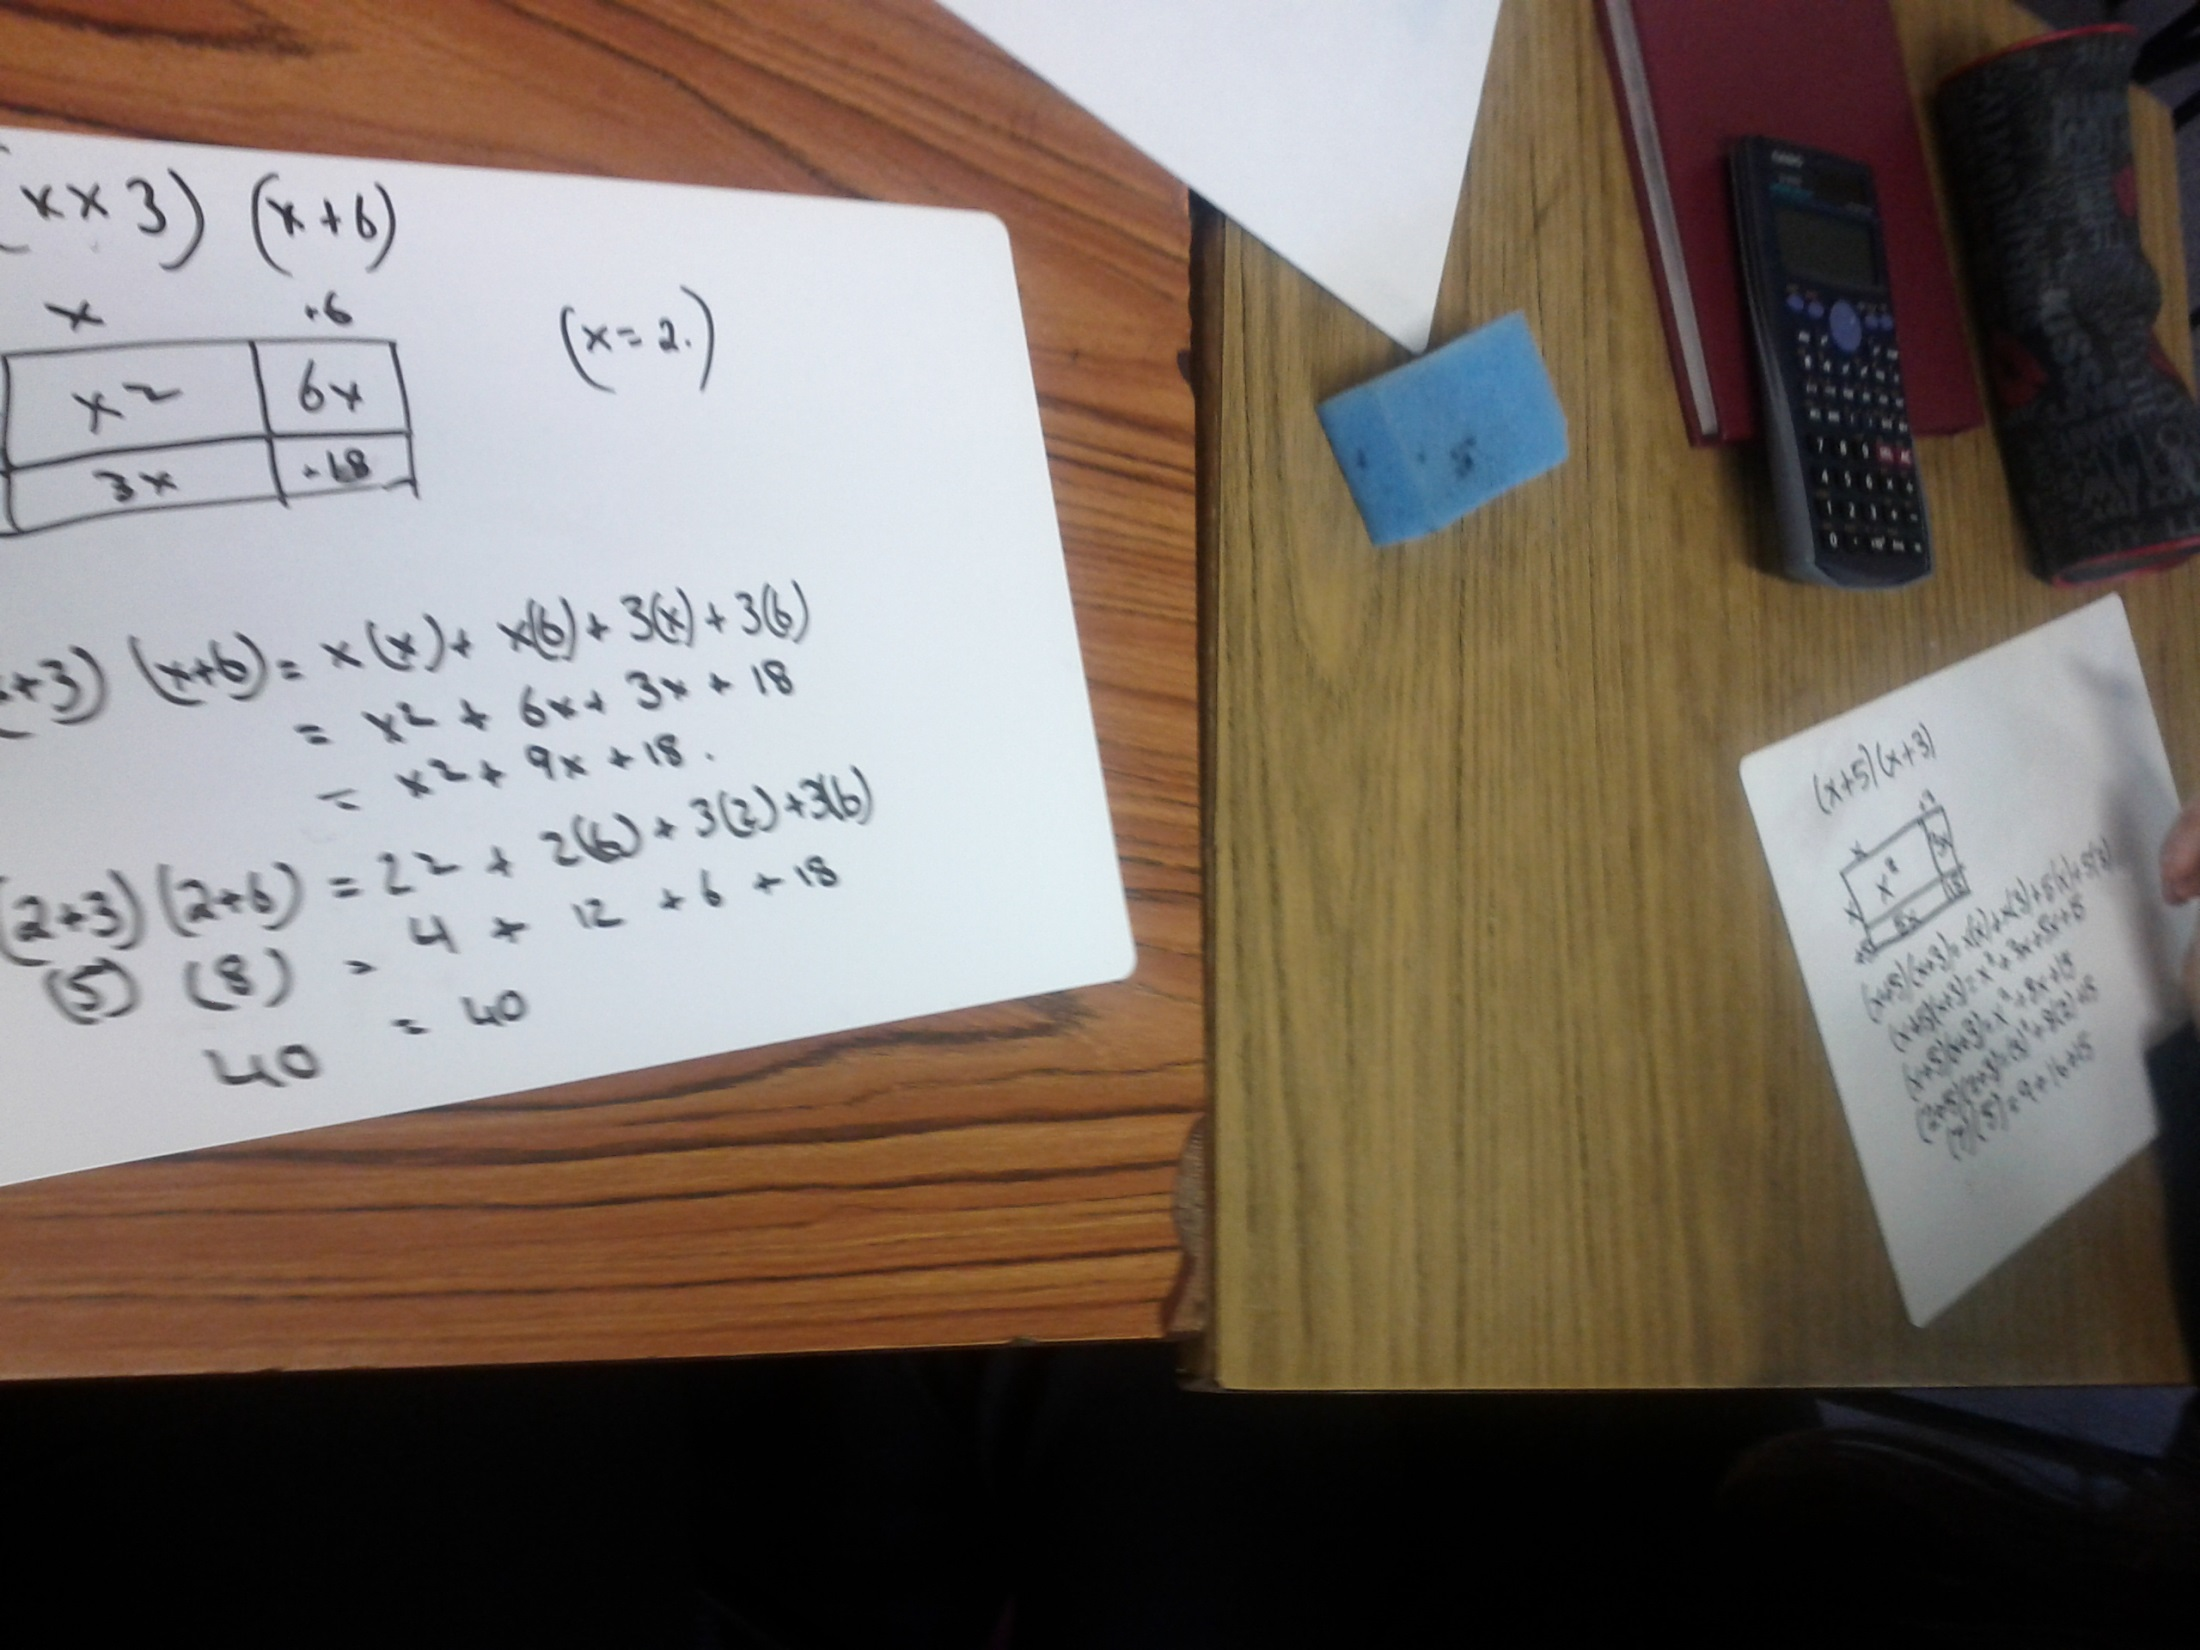 (x x 3) (x+6)
x +6
x² 6x
3x +18
(x = 2.)
+3) (x+6) = x(x) + x(6) + 3(x) + 3(6)
= x² + 6x + 3x + 18
= x² + 9x + 18.
(2+3) (2+6) = 2² + 2(6) + 3(2) + 3(6)
(5) (8) = 4 + 12 + 6 + 18
40 = 40
CASIO
7 8 9
4 5 6
1 2 3
0
(x+5)(x+3)
x +3
x x² 3x
+5 5x 15
(x+5)(x+3) = x(x) + x(3) + 5(x) + 5(3)
(x+5)(x+3) = x² + 3x + 5x + 15
(x+5)(x+3) = x² + 8x + 15
(2+5)(2+3) = + 8(2) + 15
(7)(5) = 9 + 16 + 15